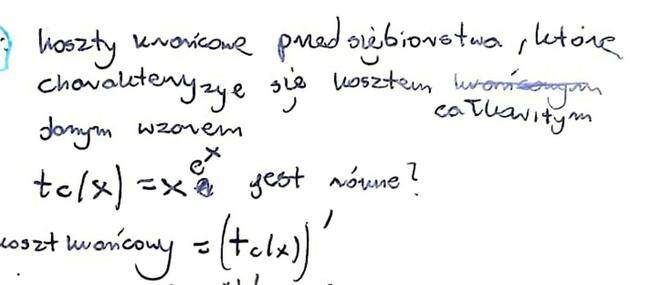 koszty krańcowe przedsiębiorstwa, które
charakteryzuje się kosztem krańcowym
całkowitym
danym wzorem
tc(x) = x e^x jest równe?
koszt krańcowy = (tc(x))'